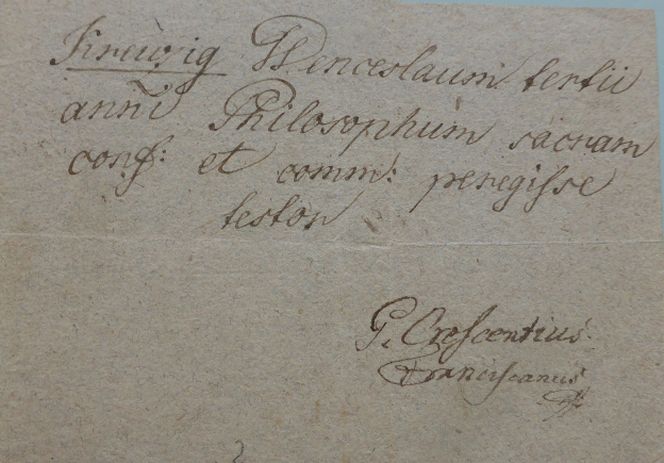 Kreuzig Wenceslaum tertii
anni Philosophum sacram
conf: et comm: peregisse
testor
P. Crescentius
Franciscanus